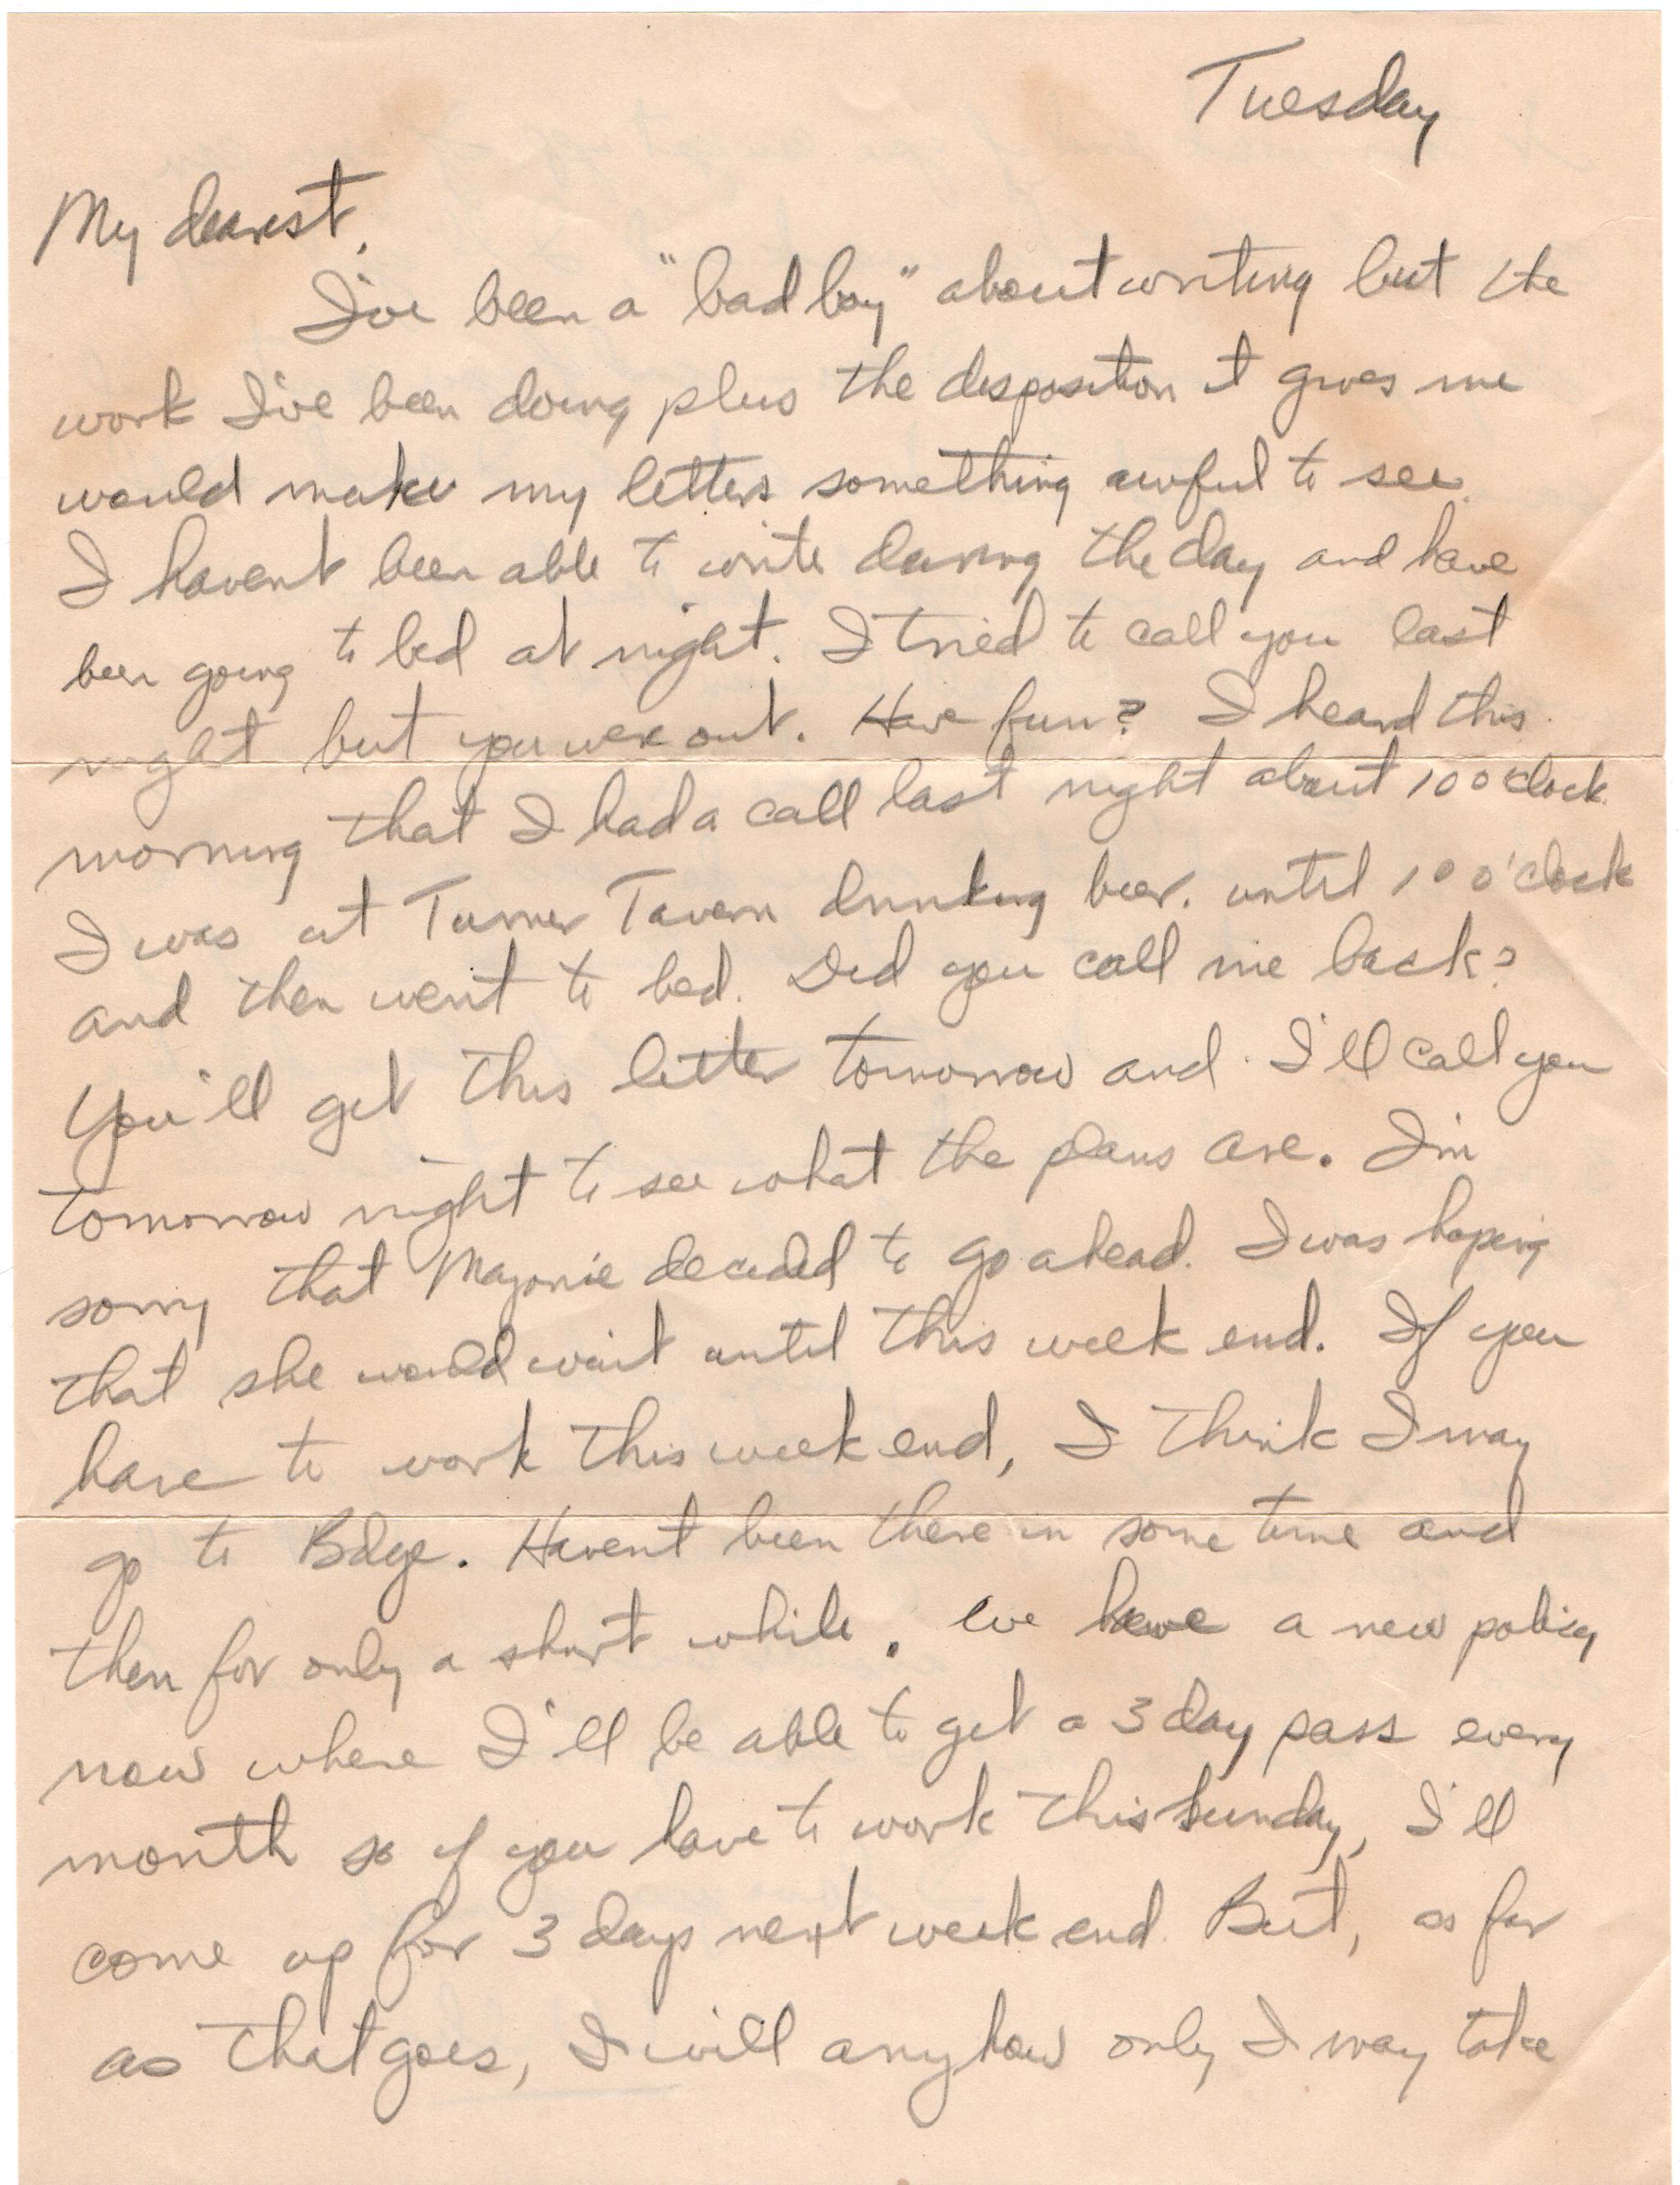 Tuesday
My dearest,
I've been a "bad boy" about writing but the
work I've been doing plus the disposition it gives me
would make my letters something awful to see.
I havent been able to write during the day and have
been going to bed at night. I tried to call you last
night but you were out. Have fun? I heard this
morning that I had a call last night about 10 o'clock.
I was at Turner Tavern drinking beer. until 10 o'clock
and then went to bed. Did you call me back?
You'll get this letter tomorrow and I'll call you
tomorrow night to see what the plans are. I'm
sorry that Marjorie decided to go ahead. I was hoping
that she would wait until this week end. If you
have to work this week end, I think I may
go to Bdge. Havent been there in some time and
then for only a short while. We have a new policy
now where I'll be able to get a 3 day pass every
month so if you have to work this Sunday, I'll
come up for 3 days next week end. But, as far
as that goes, I will anyhow only I may take